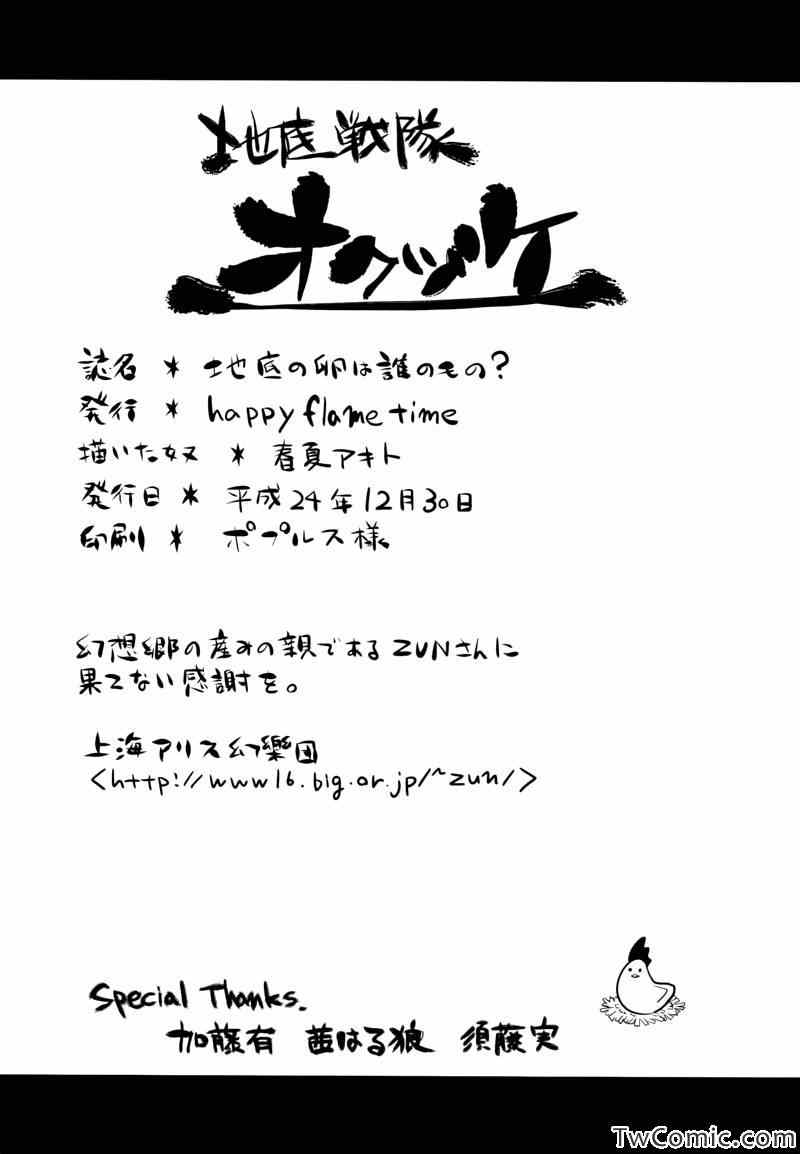 地底戦隊
オクヅケ
誌名 * 地底の卵は誰のもの?
発行 * happy flame time
描いた奴 * 春夏アキト
発行日 * 平成24年12月30日
印刷 * ポプルス様
幻想郷の産みの親であるZUNさんに
果てない感謝を。
上海アリス幻樂団
<http://www16.big.or.jp/~zun/>
Special Thanks.
加藤有 茜はる狼 須藤実
TwComic.com
TwComic.com